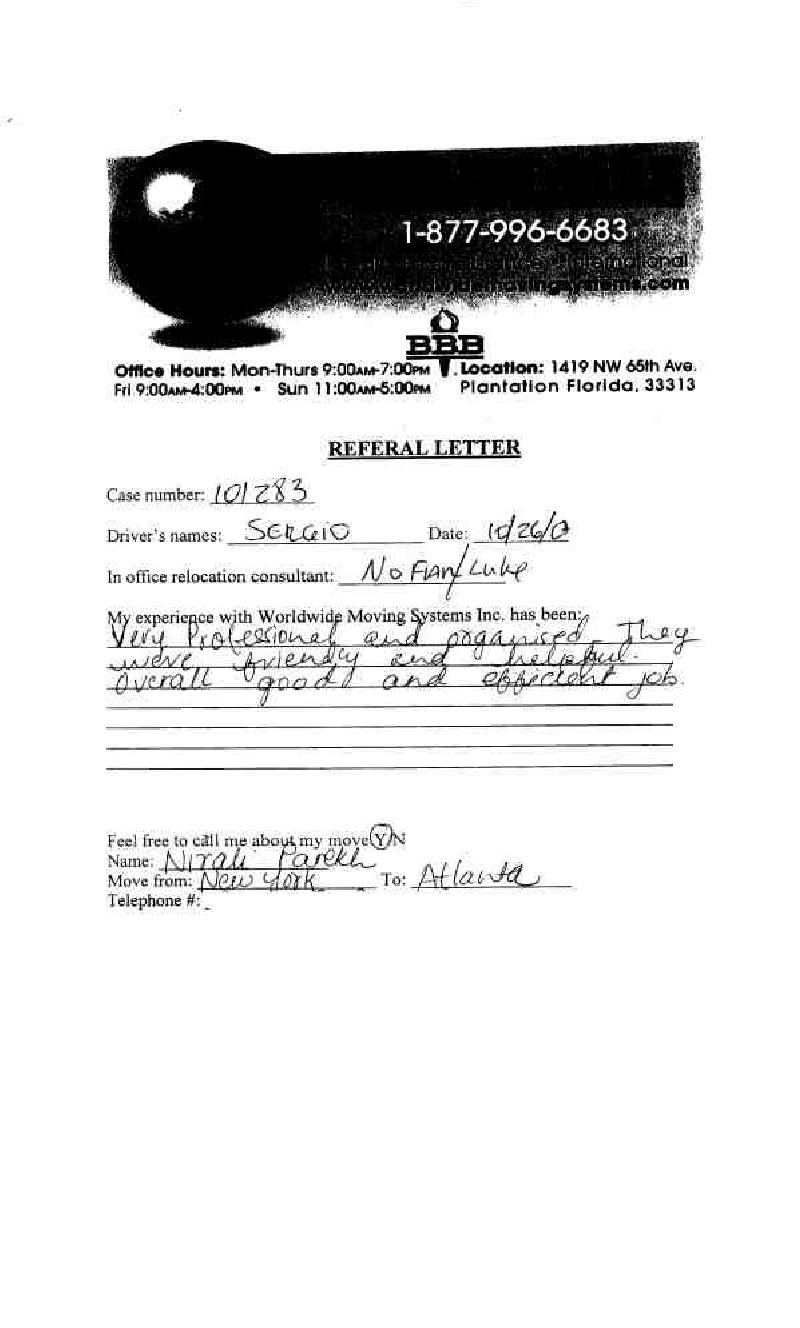 1-877-996-6683
BBB
Office Hours: Mon-Thurs 9:00AM-7:00PM
Location: 1419 NW 65th Ave.
Fri 9:00AM-4:00PM • Sun 11:00AM-5:00PM
Plantation Florida, 33313
REFERAL LETTER
Case number: 101283
Driver's names: SERGIO Date: 10/26/0
In office relocation consultant: Luke
My experience with Worldwide Moving Systems Inc. has been:
Very Professional and organised. They
were friendly and helpful.
Overall good and efficient job.
Feel free to call me about my move Y/N
Name: Nirali Parekh
Move from: New York To: Atlanta
Telephone #: